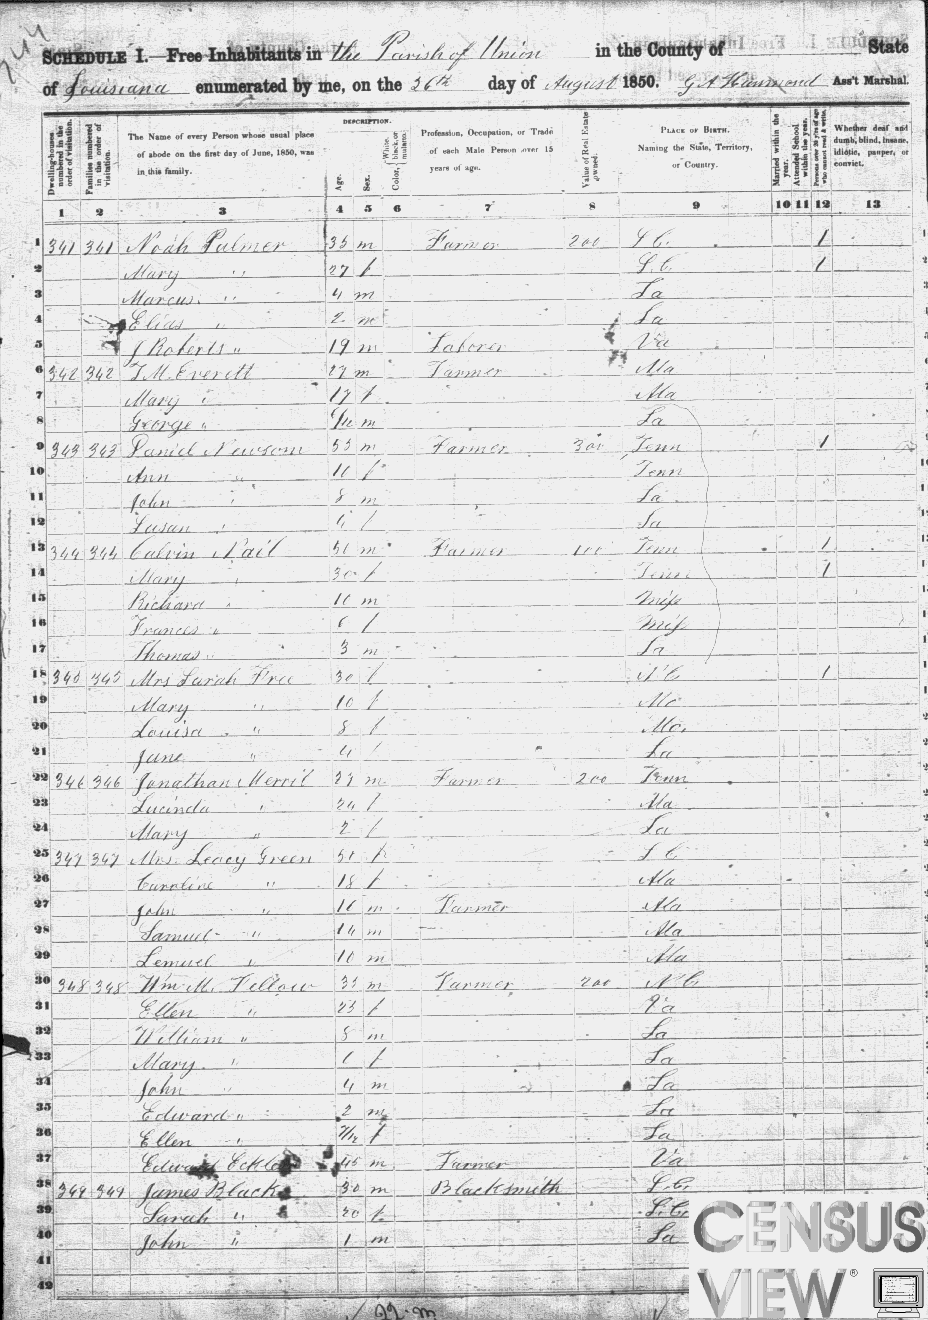 SCHEDULE I.—Free Inhabitants in the Parish of Union in the County of State
of Louisiana enumerated by me, on the 26th day of August 1850. G A Hammond Ass't Marshal.
Dwelling-houses numbered in the order of visitation.
Families numbered in the order of visitation.
The Name of every Person whose usual place of abode on the first day of June, 1850, was in this family.
DESCRIPTION.
Age.
Sex.
Color, White, black, or mulatto.
Profession, Occupation, or Trade of each Male Person over 15 years of age.
Value of Real Estate owned.
PLACE OF BIRTH. Naming the State, Territory, or Country.
Married within the year.
Attended School within the year.
Persons over 20 y'rs of age who cannot read & write.
Whether deaf and dumb, blind, insane, idiotic, pauper, or convict.
1 2 3 4 5 6 7 8 9 10 11 12 13
1 341 341 Noah Palmer 35 m Farmer 200 S C. 1
2 Mary " 27 f S. C. 1
3 Marcus " 4 m La
4 Elias " 2 m La
5 J Roberts " 19 m Laborer Va
6 342 342 T. M. Everett 27 m Farmer Ala
7 Mary " 17 f Ala
8 George " m La
9 343 343 Daniel Newsom 53 m Farmer 300 Tenn 1
10 Ann " f Tenn
11 John " 8 m La
12 Susan " 6 f La
13 344 344 Calvin Nail m Farmer 100 Tenn 1
14 Mary " 30 f Tenn 1
15 Richard " m Miss
16 Frances " 6 f Miss
17 Thomas " 3 m La
18 345 345 Mrs Sarah Free 30 f 1
19 Mary " 10 f Mo
20 Louisa " 8 f Mo.
21 Jane " 4 f La
22 346 346 Jonathan Merril 27 m Farmer 200 Tenn
23 Lucinda " 24 f Ala
24 Mary " 2 f La
25 347 347 Mrs. Leacy Green f S C
26 Caroline " 18 f Ala
27 John " 16 m Farmer Ala
28 Samuel " 14 m Ala
29 Lemuel " 10 m Ala
30 348 348 Wm M. Fellow 33 m Farmer 200 N C
31 Ellen " 23 f Va
32 William " 8 m La
33 Mary " 6 f La
34 John " 4 m La
35 Edward " 2 m La
36 Ellen " 7/12 f La
37 Edward 45 m Farmer Va
38 349 349 James Black 30 m Blacksmith S. C
39 Sarah " 20 f S. C.
40 John " 1 m La
41
42
22 m
CENSUS
VIEW®